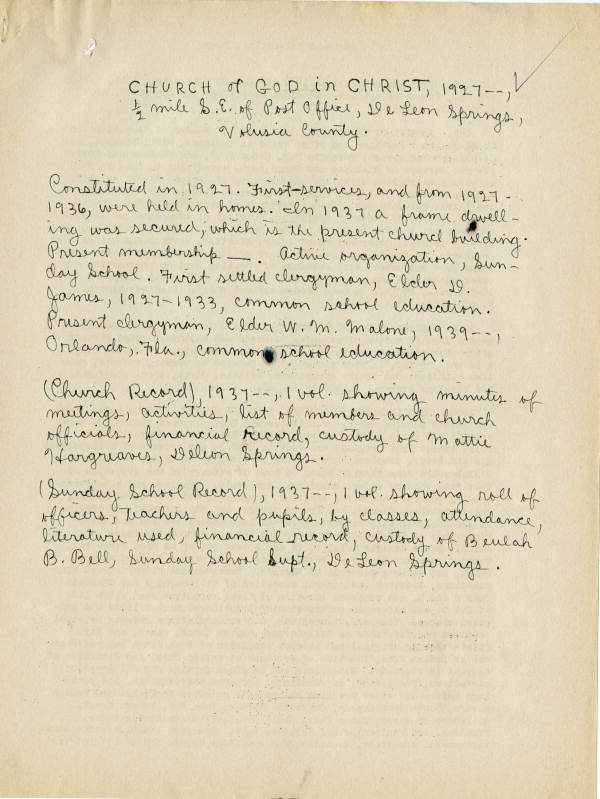 CHURCH of GOD in CHRIST, 1927--,
½ mile S.E. of Post Office, De Leon Springs,
Volusia County.
Constituted in 1927. First services, and from 1927-
1936, were held in homes. In 1937 a frame dwell-
ing was secured, which is the present church building.
Present membership —. Active organization, Sun-
day School. First settled clergyman, Elder D.
James, 1927-1933, common school education.
Present clergyman, Elder W. M. Malone, 1939--,
Orlando, Fla., common school education.
(Church Record), 1937--, 1 vol. showing minutes of
meetings, activities, list of members and church
officials, financial record, custody of Mattie
Hargreaves, Deleon Springs.
(Sunday School Record), 1937--, 1 vol. showing roll of
officers, teachers and pupils, by classes, attendance,
literature used, financial record, custody of Beulah
B. Bell, Sunday School Supt., De Leon Springs.